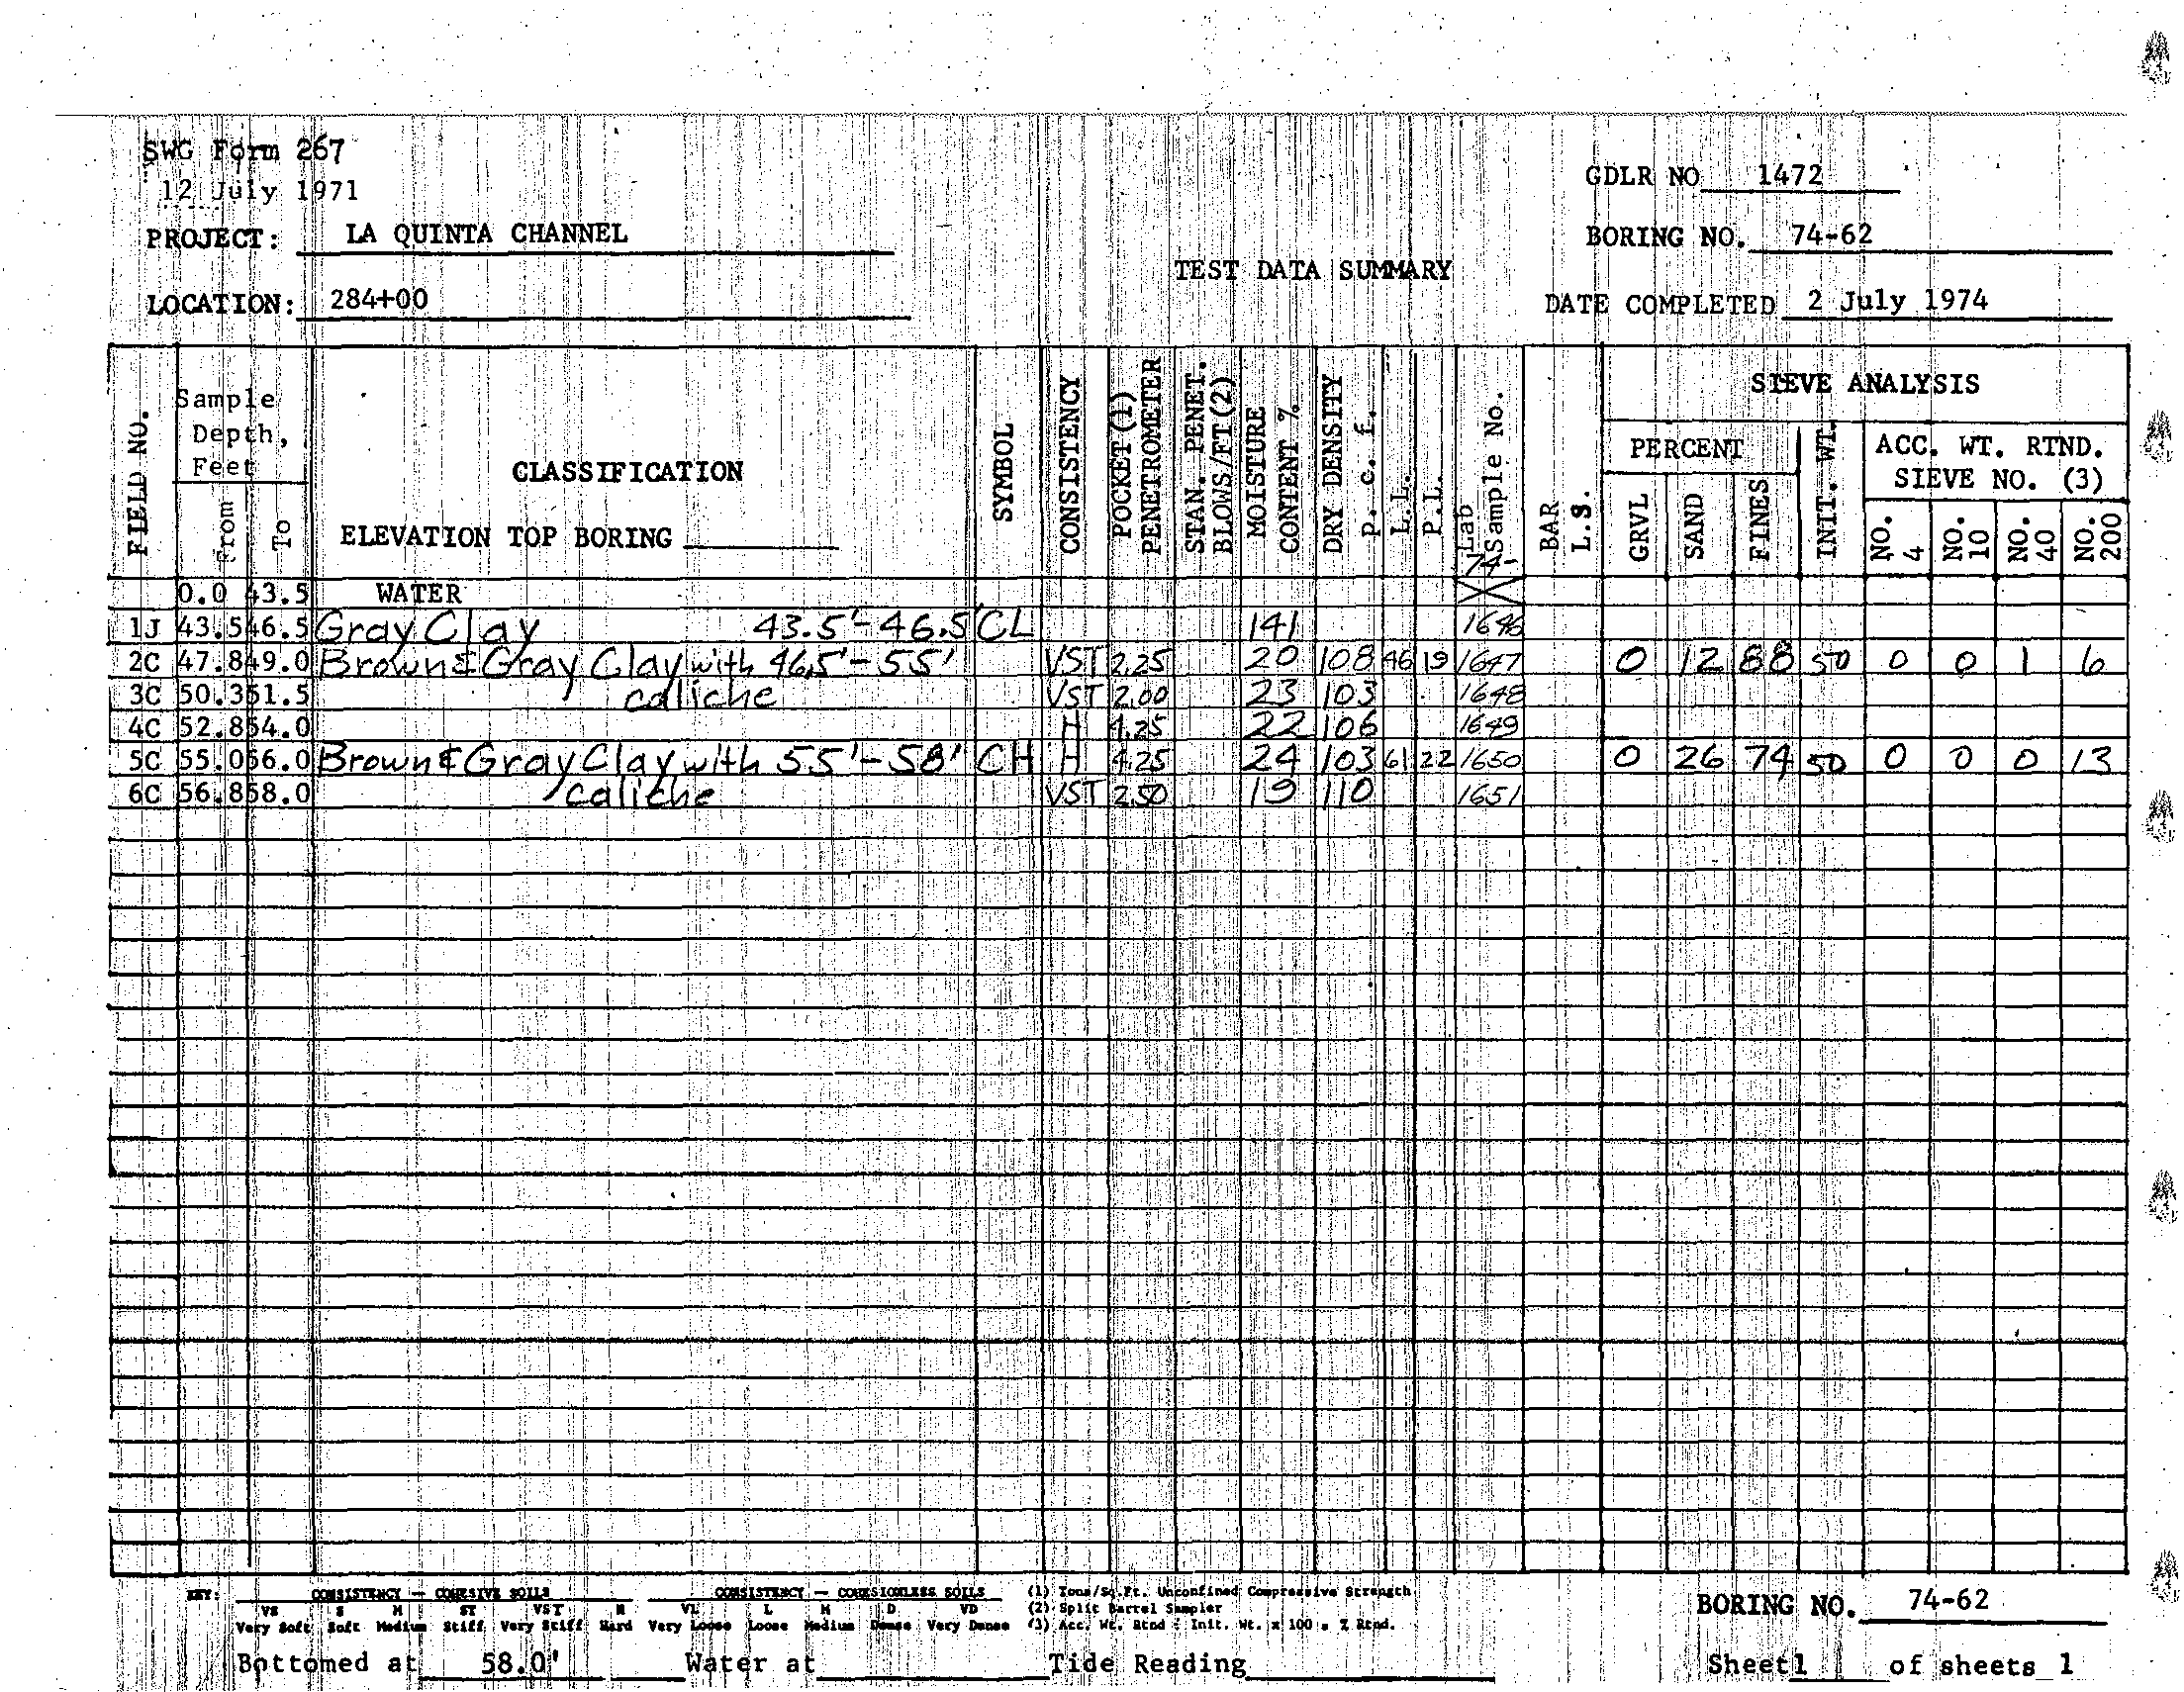 SWG Form 267
12 July 1971
GDLR NO 1472
PROJECT: LA QUINTA CHANNEL
BORING NO. 74-62
TEST DATA SUMMARY
LOCATION: 284+00
DATE COMPLETED 2 July 1974
FIELD NO.
Sample Depth, Feet
From
To
CLASSIFICATION
ELEVATION TOP BORING
SYMBOL
CONSISTENCY
POCKET (1) PENETROMETER
STAN. PENET. BLOWS/FT (2)
MOISTURE CONTENT %
DRY DENSITY p. c. f.
L.L.
P.L.
Lab Sample No.
74-
BAR L.S.
SIEVE ANALYSIS
PERCENT
GRVL
SAND
FINES
INIT. WT.
ACC. WT. RTND. SIEVE NO. (3)
NO. 4
NO. 10
NO. 40
NO. 200
0.0 43.5 WATER
1J 43.5 46.5 Gray Clay 43.5'-46.5' CL 141 1646
2C 47.8 49.0 Brown & Gray Clay with 46.5'-55' VST 2.25 20 108 46 19 1647 0 12 88 50 0 0 1 6
3C 50.3 51.5 caliche VST 2.00 23 103 1648
4C 52.8 54.0 H 4.25 22 106 1649
5C 55.0 56.0 Brown & Gray Clay with 55'-58' CH H 4.25 24 103 61 22 1650 0 26 74 50 0 0 0 13
6C 56.8 58.0 caliche VST 2.50 19 110 1651
KEY: CONSISTENCY — COHESIVE SOILS CONSISTENCY — COHESIONLESS SOILS (1) Tons/Sq.Ft. Unconfined Compressive Strength
VS S M ST VST H VL L M D VD (2) Split Barrel Sampler
Very Soft Soft Medium Stiff Very Stiff Hard Very Loose Loose Medium Dense Very Dense (3) Acc. Wt. Rtnd ÷ Init. Wt. x 100 = % Rtnd.
BORING NO. 74-62
Bottomed at 58.0' Water at Tide Reading Sheet 1 of sheets 1